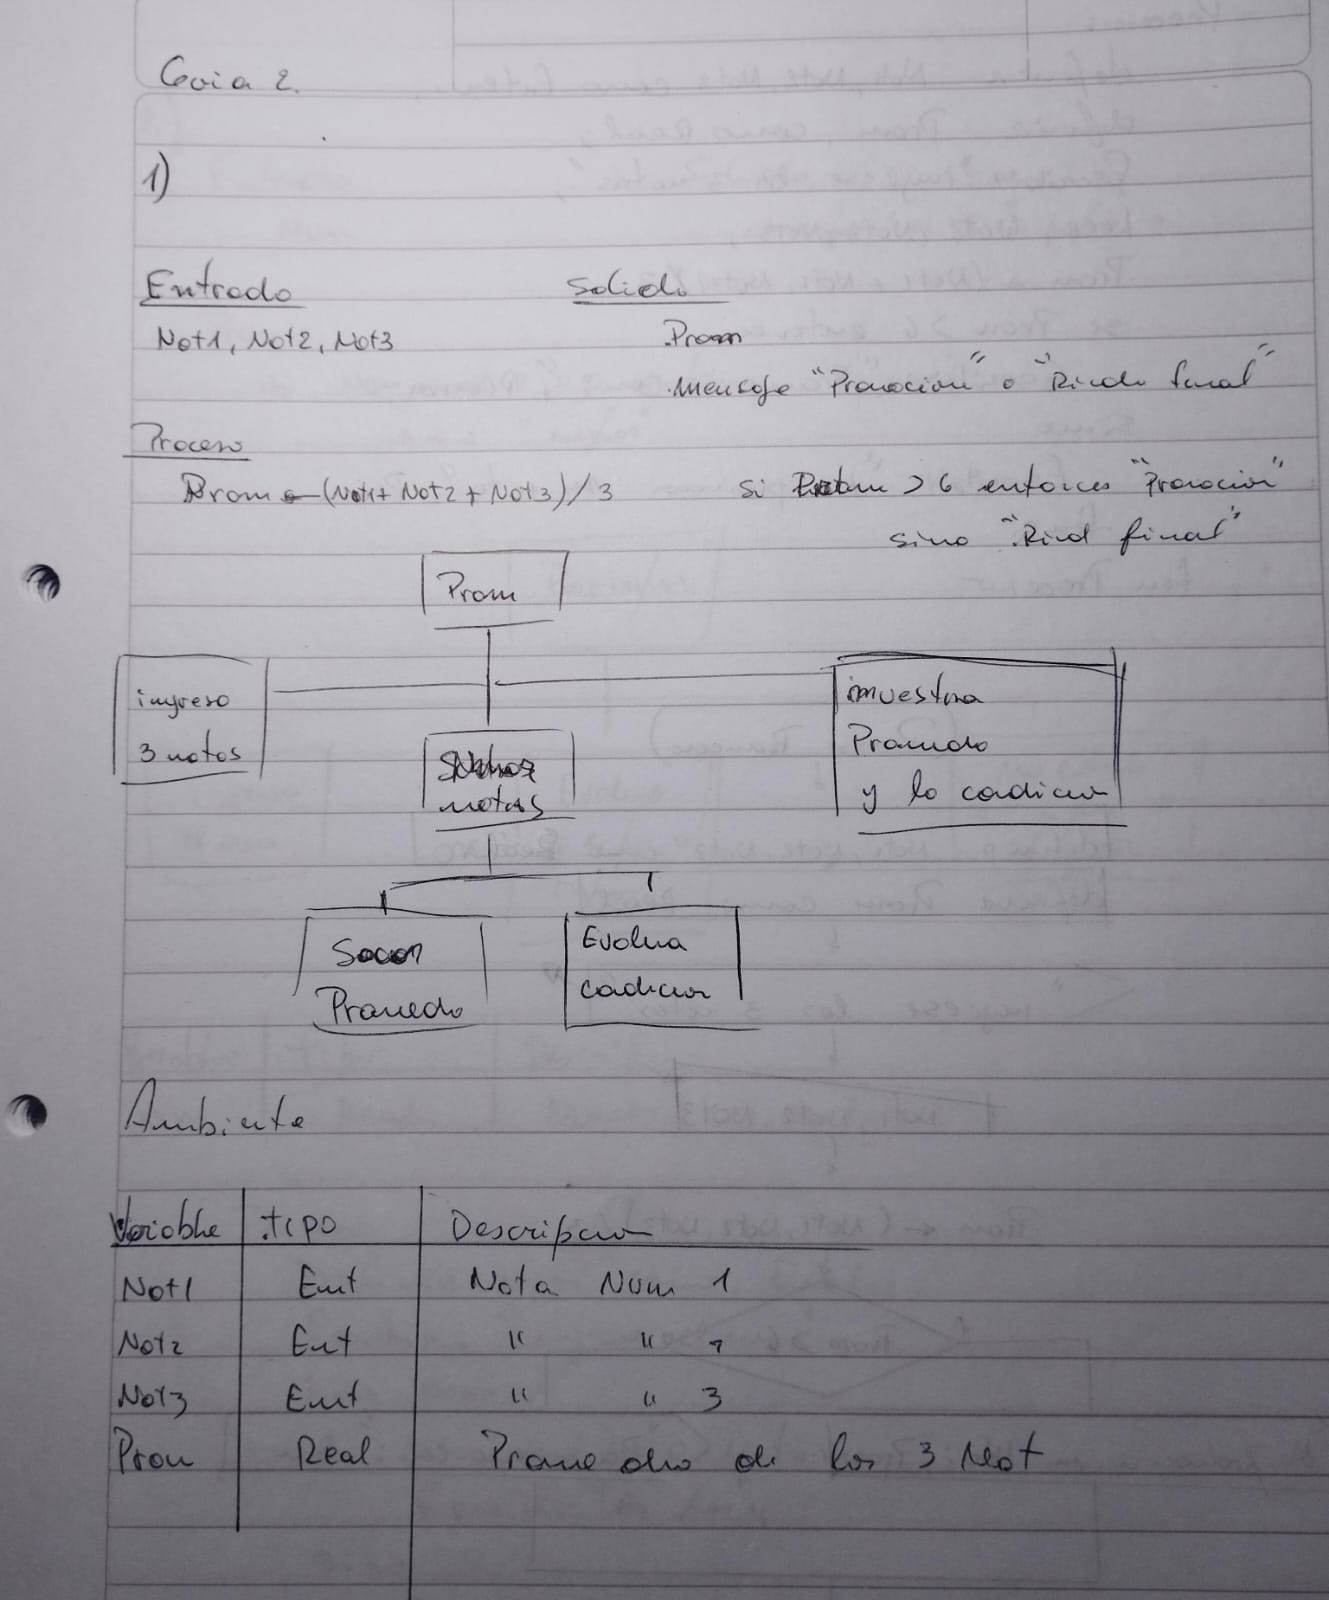 Guia 2.
1)
Entrada
Salida
Not1, Not2, Not3
.Prom
.Mensaje "Promocion" o "Rinde final"
Proceso
Prom ← (Not1 + Not2 + Not3) / 3
si Prom > 6 entonces "Promocion"
sino "Rind final"
Prom
ingreso
3 notas
notas
muestra
Promedo
y la condicion
Sacar
Promedo
Evalua
condicion
Ambiente
Variable tipo Descripcion
Not1 Ent Nota Num 1
Not2 Ent " " 2
Not3 Ent " " 3
Prom Real Promedio de las 3 Not